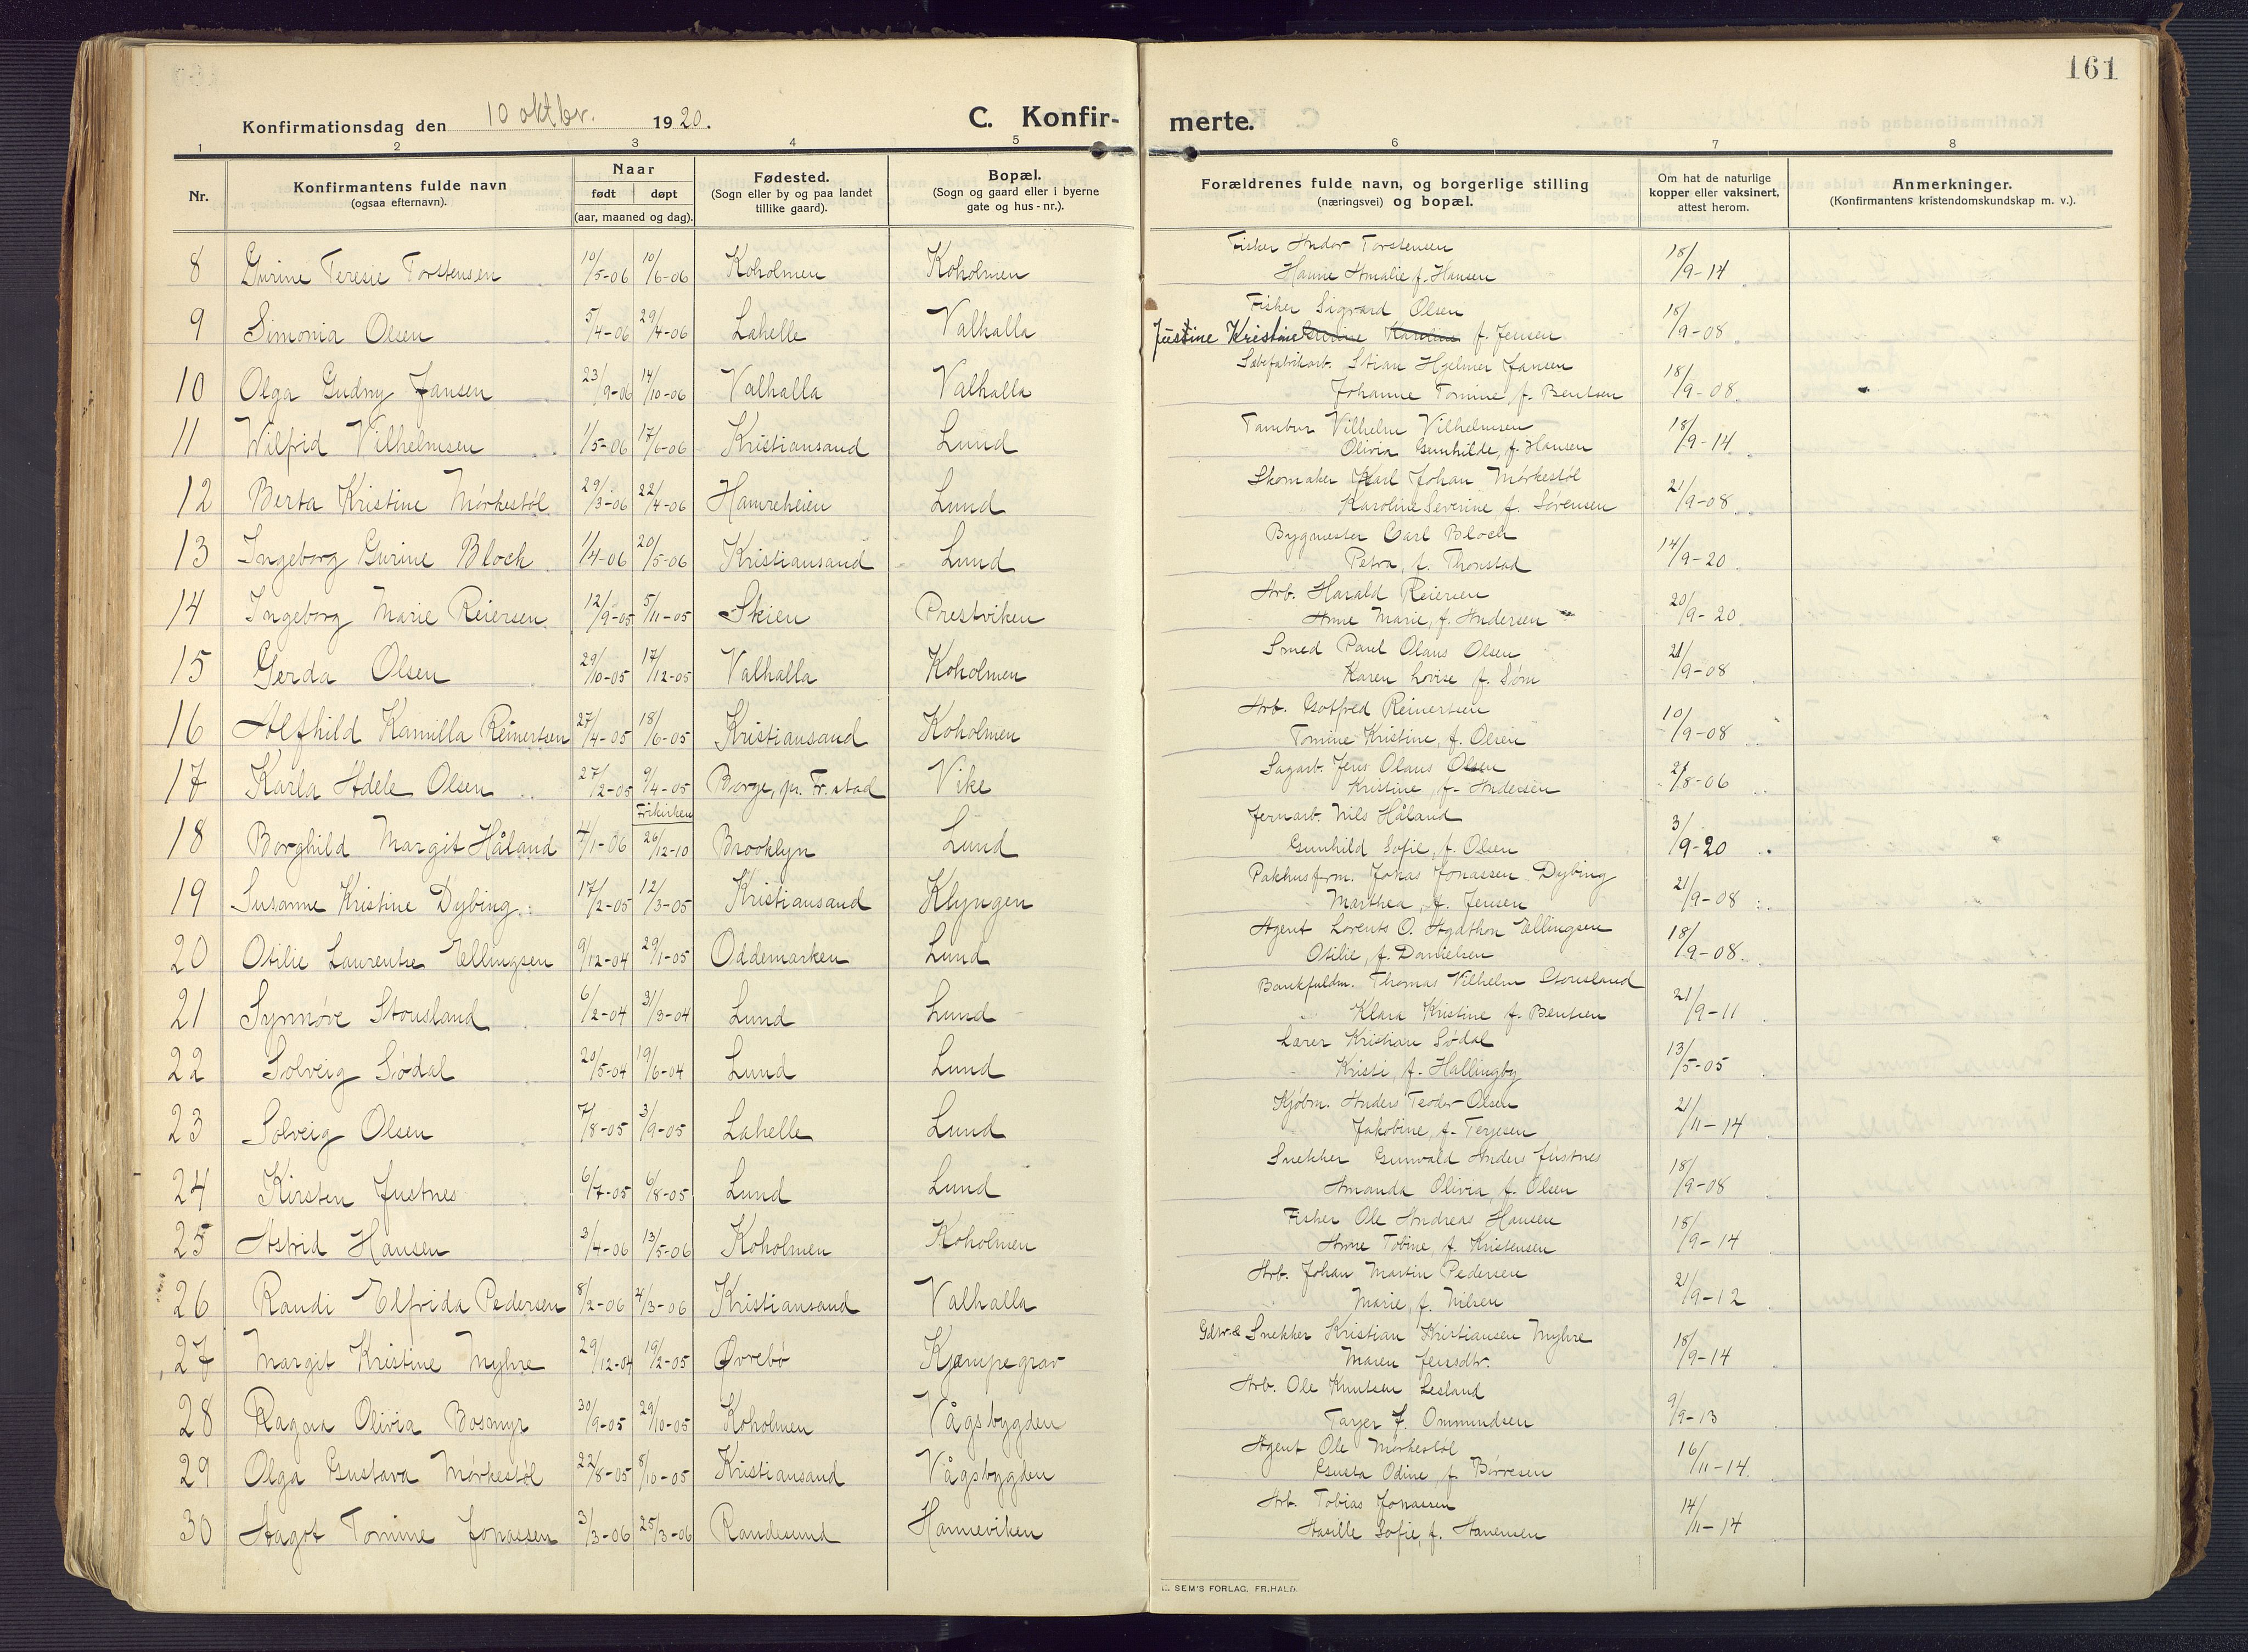 161
Konfirmationsdag den 10 oktbr. 1920.
C. Konfir-
merte.
1 2 3 4 5 6 7 8
Nr.
Konfirmantens fulde navn
(ogsaa efternavn).
Naar
født døpt
(aar, maaned og dag).
Fødested.
(Sogn eller by og paa landet
tillike gaard).
Bopæl.
(Sogn og gaard eller i byerne
gate og hus-nr.).
Forældrenes fulde navn, og borgerlige stilling
(næringsvei) og bopæl.
Om hat de naturlige
kopper eller vaksinert,
attest herom.
Anmerkninger.
(Konfirmantens kristendomskundskap m. v.).
Fisker Andor Torstensen
8 Gurine Teresie Torstensen 10/5-06 10/6-06 Koholmen Koholmen Hanne Amalie f. Hansen 18/9-14
Fisker Sigvard Olsen
9 Simonia Olsen 5/4-06 29/4-06 Lahelle Valhalla Justine Kristine f. Jensen 18/9-08
Sæbefabrikarb. Stian Hjelmer Jansen
10 Olga Gudny Jansen 23/9-06 14/10-06 Valhalla Valhalla Johanne Tomine, f. Bentsen 18/9-08
Tambur Vilhelm Vilhelmsen
11 Wilfrid Vilhelmsen 1/5-06 17/6-06 Kristiansand Lund Olivia Gunhilde, f. Hansen 18/9-14
Skomaker Karl Johan Mørkestøl
12 Berta Kristine Mørkestøl 29/3-06 22/4-06 Hamreheien Lund Karoline Severine f. Sørensen 21/9-08
Bygmester Carl Bloch
13 Ingeborg Gurine Bloch 1/4-06 20/5-06 Kristiansand Lund Petra, f. Thonstad 14/9-20
Arb. Harald Reiersen
14 Ingeborg Marie Reiersen 12/9-05 5/11-05 Skien Prestviken Anne Marie, f. Andersen 20/9-20
Smed Paul Olaus Olsen
15 Gerda Olsen 29/10-05 17/12-05 Valhalla Koholmen Karen Lovise f. Søm 21/9-08
Arb. Gotfred Reinertsen
16 Alfhild Kamilla Reinertsen 27/4-05 18/6-05 Kristiansand Koholmen Tomine Kristine, f. Olsen 10/9-08
Sagarb. Jens Olaus Olsen
17 Karla Adele Olsen 27/2-05 9/4-05 Borge, pr. Fr.stad Vike Kristine, f. Andersen 21/8-06
Frikirken
Jernarb. Nils Håland
18 Borghild Margit Håland 4/1-06 26/12-10 Brooklyn Lund Gunhild Sofie, f. Olsen 3/9-20
Pakhusfrm. Jonas Jonassen Dybing
19 Susanne Kristine Dybing 17/2-05 12/3-05 Kristiansand Klyngen Marthea, f. Jensen 21/9-08
Agent Lorents O. Agathon Ellingsen
20 Otilie Laurentse Ellingsen 9/12-04 29/1-05 Oddemarken Lund Otilie, f. Danielsen 18/9-08
Bankfuldm. Thomas Vilhelm Stousland
21 Synnøve Stousland 6/2-04 31/3-04 Lund Lund Klara Kristine f. Bentsen 21/9-11
Lærer Kristian Sødal
22 Solveig Sødal 20/5-04 19/6-04 Lund Lund Kristi, f. Hallingby 13/5-05
Kjøbm. Anders Teodor Olsen
23 Solveig Olsen 7/8-05 3/9-05 Lahelle Lund Jakobine, f. Terjesen 21/11-14
Snekker Gunvald Anders Justnes
24 Kirsten Justnes 6/7-05 6/8-05 Lund Lund Amanda Olivia, f. Olsen 18/9-08
Fisker Ole Andreas Hansen
25 Astrid Hansen 3/4-06 13/5-06 Koholmen Koholmen Anne Tobine, f. Kristensen 18/9-14
Arb. Johan Martin Pedersen
26 Randi Elfrida Pedersen 8/2-06 4/3-06 Kristiansand Valhalla Marie, f. Nilsen 21/9-12
Gdbr. & Snekker Kristian Kristiansen Myhre
27 Margit Kristine Myhre 29/12-04 19/2-05 Øvrebø Kjempegrav Maren Jensdtr. 18/9-14
Arb. Ole Knutsen Lesland
28 Ragna Olivia Bosmyr 30/9-05 29/10-05 Koholmen Vågsbygden Tarjer f. Ommundsen 9/9-13
Agent Ole Mørkestøl
29 Olga Gustava Mørkestøl 22/8-05 8/10-05 Kristiansand Vågsbygden Gusta Odine, f. Børresen 16/11-14
Arb. Tobias Jonassen
30 Aagot Tomine Jonassen 3/3-06 25/3-06 Randesund Hanneviken Sofie, f. 14/11-14
SEM'S FORLAG, FR.HALD.